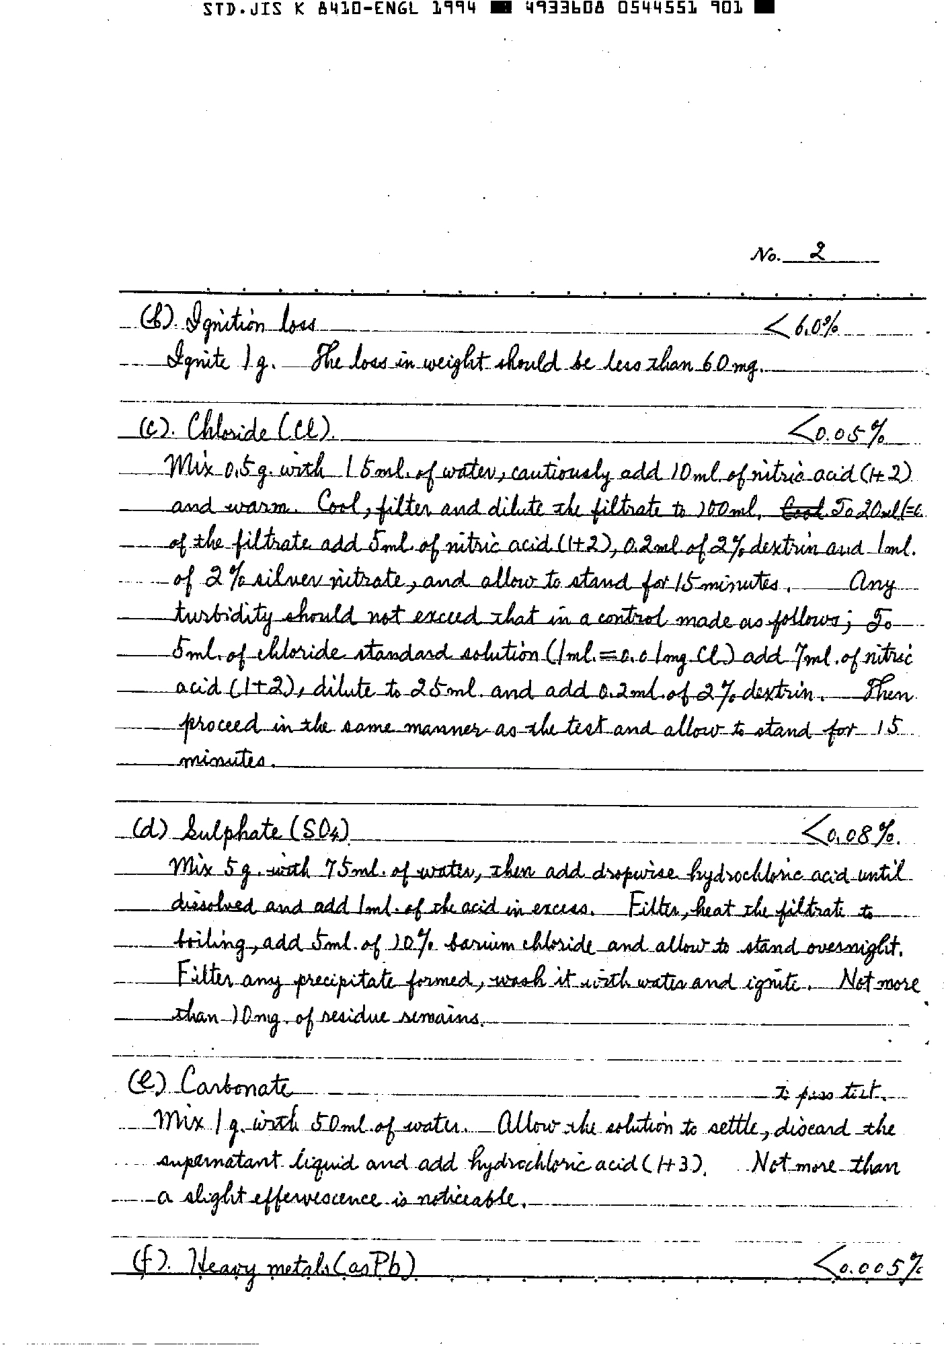 STD.JIS K 8410-ENGL 1994 ■ 4933608 0544551 901 ■
No. 2
(b). Ignition loss < 6.0%
Ignite 1g. The loss in weight should be less than 60mg.
(c). Chloride (Cl). <0.05%
Mix 0.5g. with 15ml. of water, cautiously add 10ml of nitric acid (1+2)
and warm. Cool, filter and dilute the filtrate to 100ml. To 20ml
of the filtrate add 5ml. of nitric acid (1+2), 0.2ml. of 2% dextrin and 1ml.
of 2% silver nitrate, and allow to stand for 15 minutes. Any
turbidity should not exceed that in a control made as follows; To
5ml. of chloride standard solution (1ml. = 0.01mg Cl) add 7ml. of nitric
acid (1+2), dilute to 25ml. and add 0.2ml. of 2% dextrin. Then
proceed in the same manner as the test and allow to stand for 15
minutes.
(d) Sulphate (SO4) <0.08%.
Mix 5g. with 75ml. of water, then add dropwise hydrochloric acid until
dissolved and add 1ml. of the acid in excess. Filter, heat the filtrate to
boiling, add 5ml. of 10% barium chloride and allow to stand overnight.
Filter any precipitate formed, wash it with water and ignite. Not more
than 10mg. of residue remains.
(e) Carbonate to pass test.
Mix 1g. with 50ml. of water. Allow the solution to settle, discard the
supernatant liquid and add hydrochloric acid (1+3). Not more than
a slight effervescence is noticeable.
(f). Heavy metals (as Pb) <0.005%